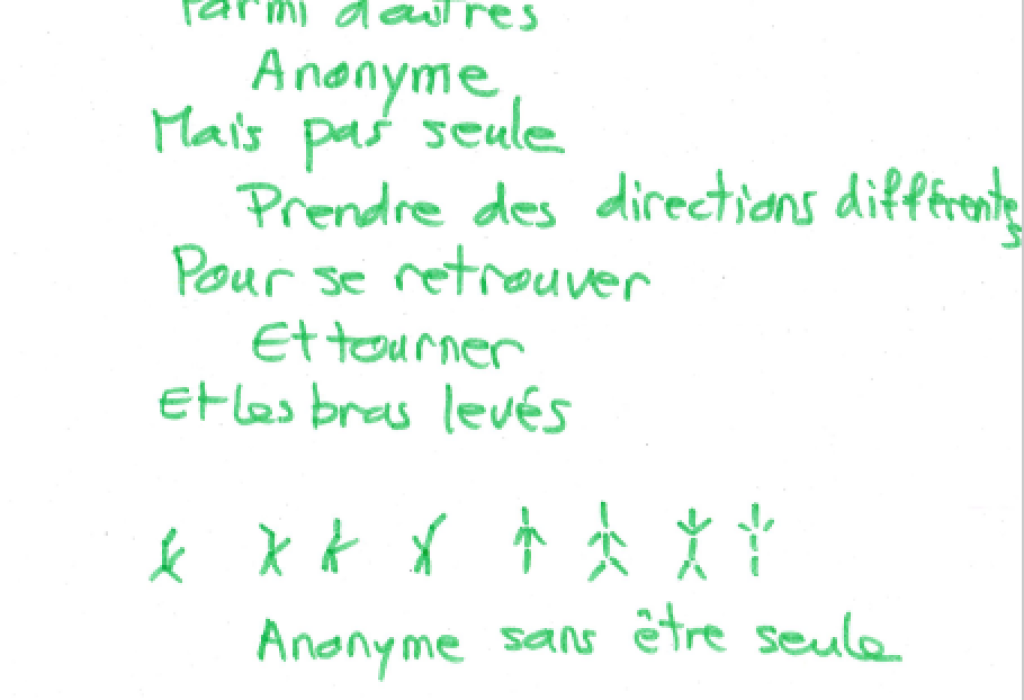 Parmi d'autres
Anonyme
Mais pas seule
Prendre des directions différentes
Pour se retrouver
Et tourner
Et les bras levés
Anonyme sans être seule